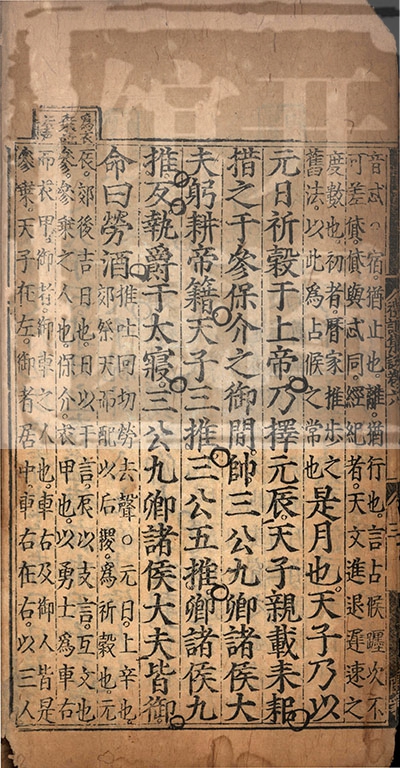 音忒。宿猶止也。離猶行也。言占候躔次不
可差貸。貸與忒同。經紀者。天文進退遲速之
度數也。初者。曆家推步之
舊法。以此為占候之常也
是月也。天子乃以
元日祈穀于上帝。乃擇元辰。天子親載耒耜。
措之于參保介之御間。帥三公九卿諸侯大
夫躬耕帝籍。天子三推。三公五推。卿諸侯九
推。反執爵于太寢。三公九卿諸侯大夫皆御。
命曰勞酒
推吐回切勞去聲。○元日。上辛也。
郊祭天而配以后稷。為祈穀也。元
辰。郊後吉日也。日以干言。辰以支言。互文也
參。參乘之人也。保介。衣甲也。以勇士為車右
而衣甲。御者。御車之人也。車右及御人皆是
參乘。天子在左。御者居中。車右在右。以三人